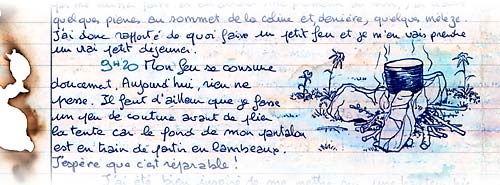 quelques pierres, au sommet de la colline et derrière, quelques mélèzes.
J'ai donc rapporté de quoi faire un petit feu et je m'en vais prendre
un vrai petit déjeuner.
9H20 Mon feu se consume
doucement. Aujourd'hui, rien ne
presse. Il faut d'ailleurs que je fasse
un peu de couture avant de plier
la tente car le fond de mon pantalon
est en train de partir en lambeaux.
J'espère que c'est réparable !
J'ai été bien inspiré de me mettre